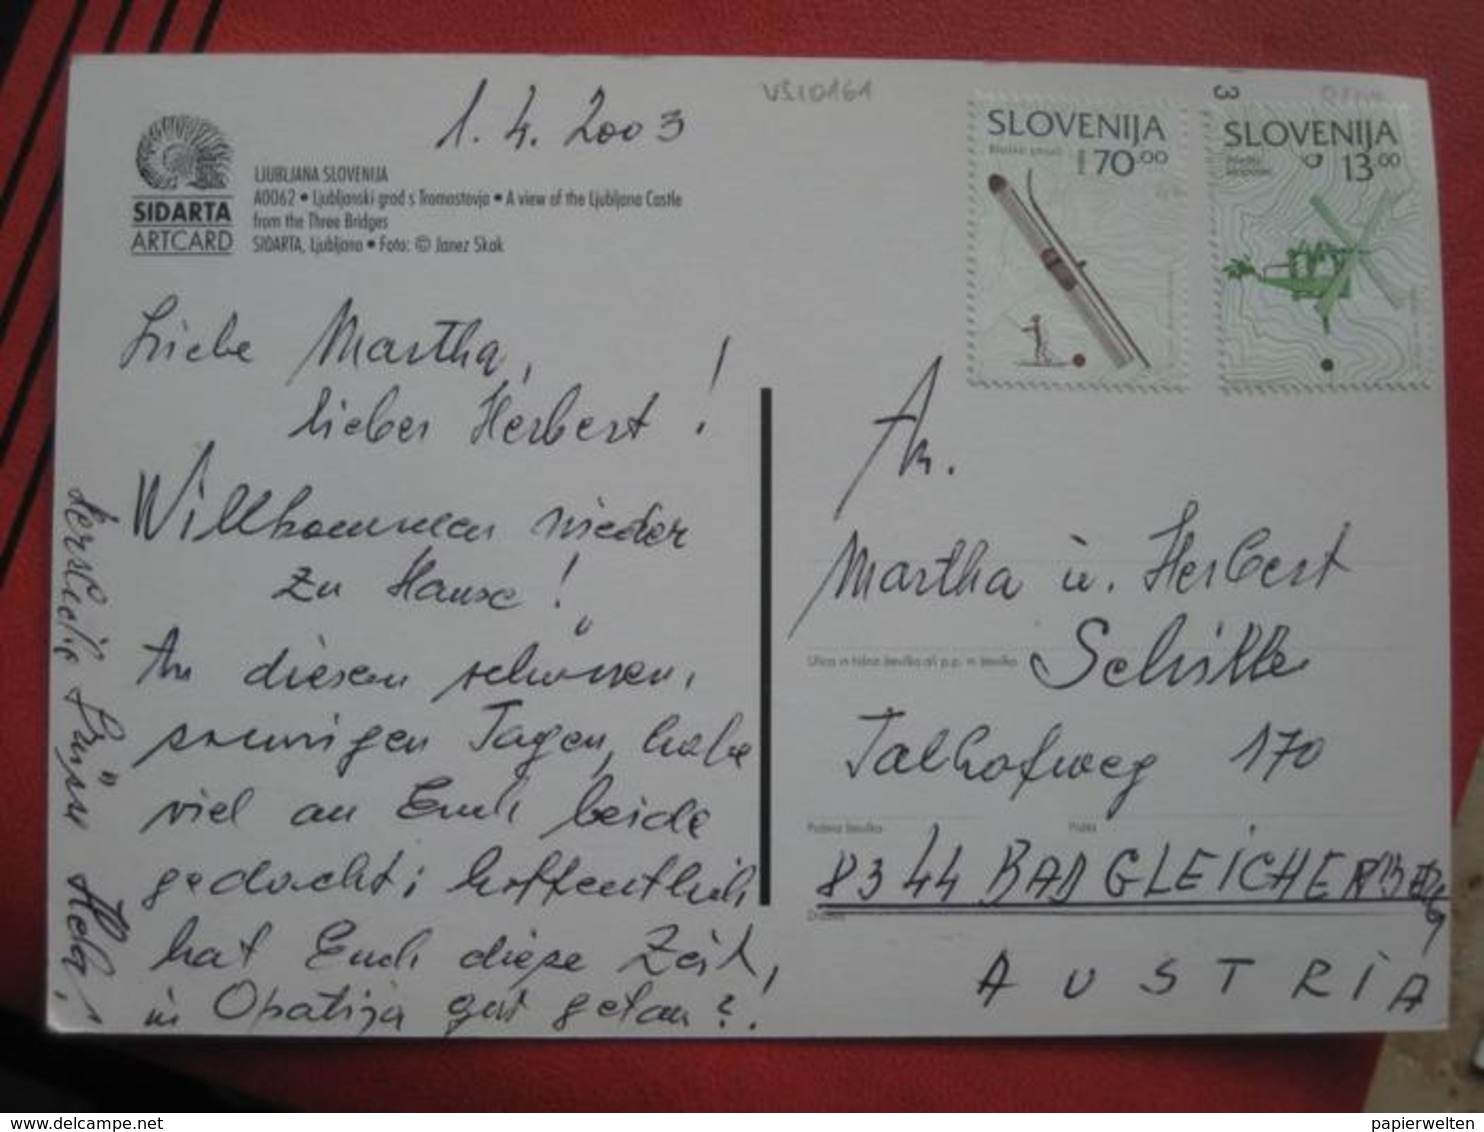 1. 4. 2003
VŠ10161
SIDARTA
ARTCARD
LJUBLJANA SLOVENIJA
A0062 • Ljubljanski grad s Tromostovja • A view of the Ljubljana Castle
from the Three Bridges
SIDARTA, Ljubljana • Foto: © Janez Skok
SLOVENIJA
70.00
SLOVENIJA
13.00
3
Liebe Martha,
lieber Herbert!
Willkommen wieder
zu Hause!
An diesen schönen,
sonnigen Tagen, habe
viel an Euch beide
gedacht; hoffentlich
hat Euch diese Zeit,
in Opatija gut getan?!
Herzliche Grüsse
An.
Martha u. Herbert
Ulica in hišna številka ali p.p. in številka
Talhofweg 170
Poštna številka
Pošta
8344 BAD GLEICHENBERG
Država
AUSTRIA
© papierwelten